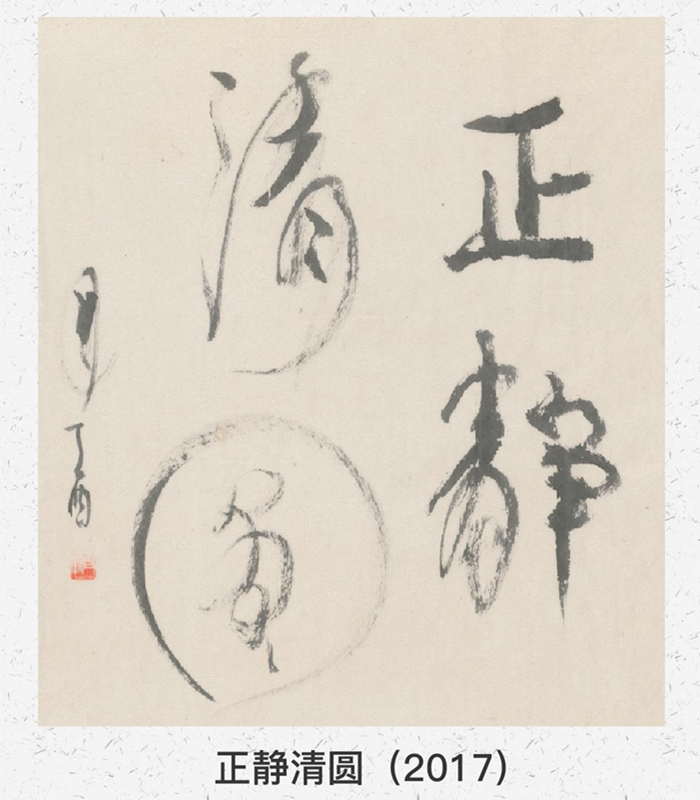 正靜
清圓
月 丁酉
正静清圆（2017）